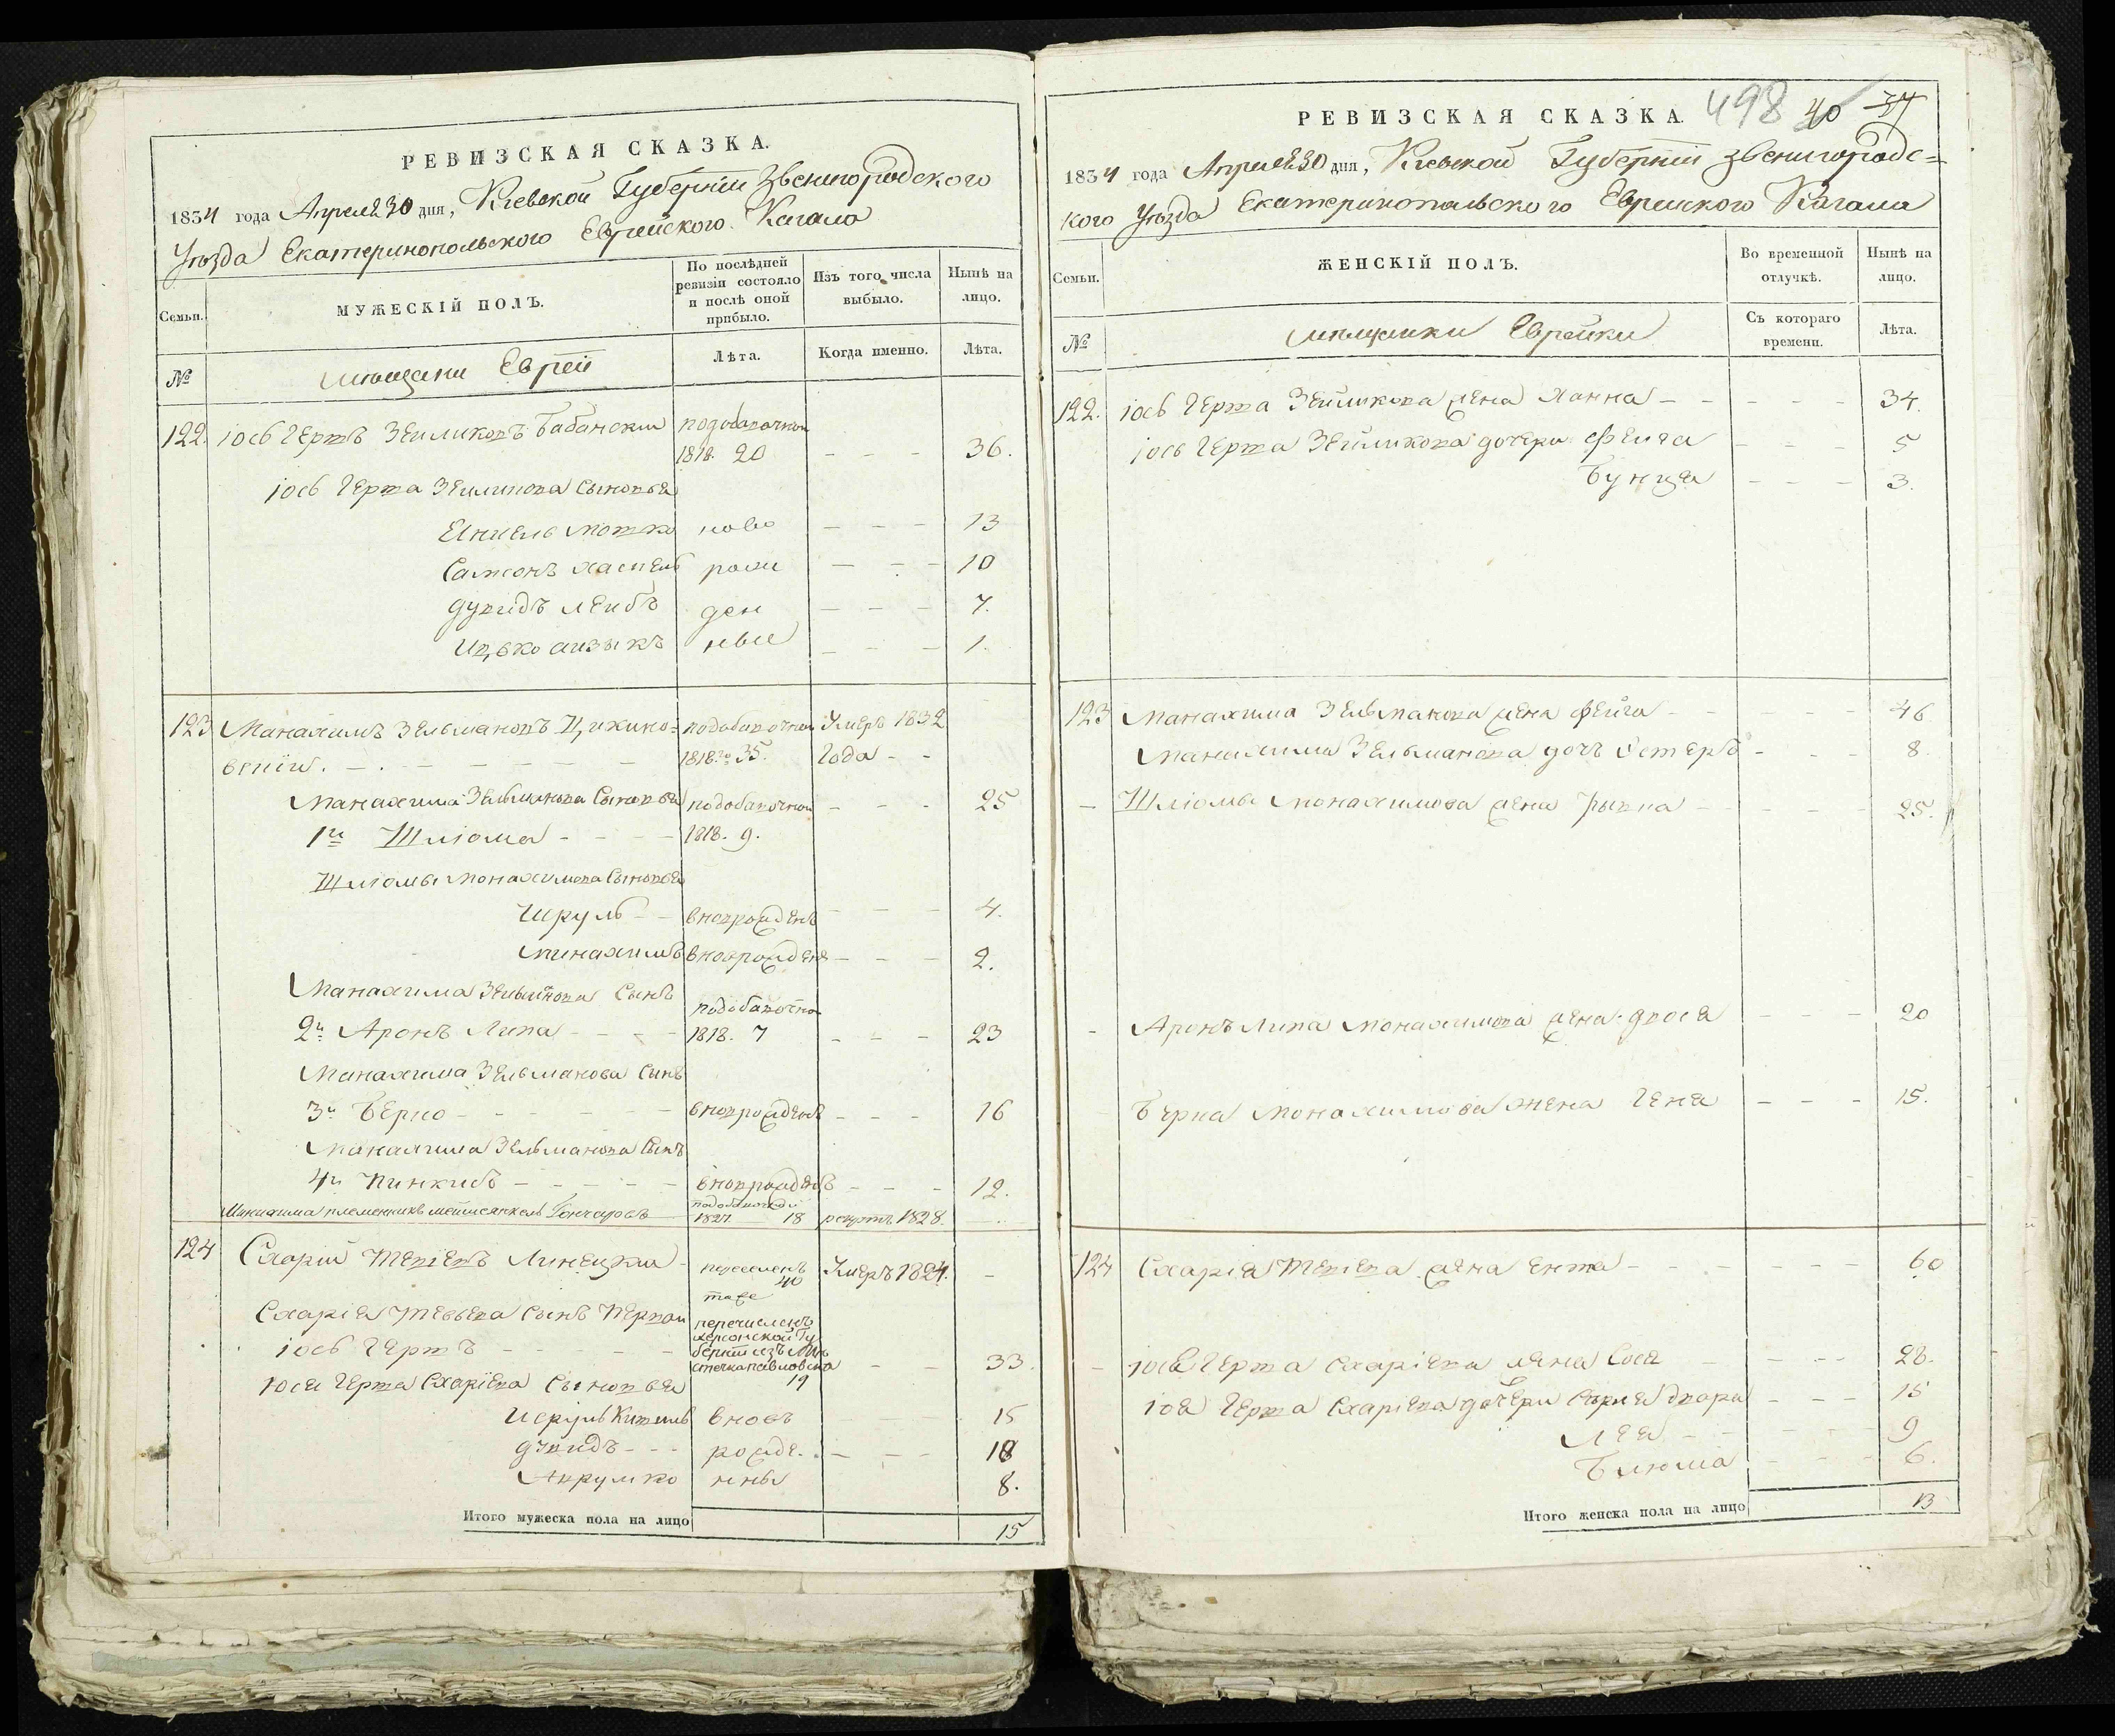 РЕВИЗСКАЯ СКАЗКА.
1834 года Апреля 30 дня, Киевской Губернии Звенигородского
Уѣзда Екатеринопольского Еврейского Кагала
Семьи.
МУЖЕСКІЙ ПОЛЪ.
По послѣдней ревизіи состояло и послѣ оной прибыло.
Изъ того числа выбыло.
Нынѣ на лицо.
№
мещани Евреи
Лѣта.
Когда именно.
Лѣта.
122. іось Герть Зейликовъ Бабански подобавочной
1818. 20 - - - 36.
іось Герта Зейликова сыновья
Янкель мотко ново - - - 13
Самсонъ хаскель рожи - - - 10
дувидъ лейбъ ден - - - 7.
Ицько аизыкъ ные - - - 1.
123 Манахимъ Зельмановъ Цихино= подобавочной Умеръ 1832
вскій. 1818.го 35. Года - -
Манахима Зельманова Сыновья подобавочной - - - 25
1й Шліома - - - - 1818. 9.
Шліомы Монахимова Сыновья
Шруль - - вноврожденъ - - - 4.
Минахимъ вноврожденъ - - - 2.
Манахима Зельманова Сынъ подобавочной
2й Аронъ Липа - - - - 1818. 7 - - - 23
Манахима Зельманова Сынъ
3й Берко - - - - - - вноврожденъ - - - 16
Манахима Зельманова Сынъ
4й Пинкисъ - - - - - вноврожденъ - - - 12.
Манахима племенникъ мейшеянкель Гончаровъ подобавочной
1827 18 рекрутъ 1828.
124 Схарій Тевіевъ Линецкій - 40 Умеръ 1824. -
Схарія Тевьева Сынъ Первой перечисленъ
іось Гертъ - - - - - - херсонской Гу
берніи изъ Мѣ
стечка павловска - - 33.
Юся Герта Схаріева Сыновья 19
Исруль Кисиль вновь 15
дувидъ - - - рожде. - - - 10
Аврумко нны 8.
Итого мужеска пола на лицо 15
РЕВИЗСКАЯ СКАЗКА. 498 40
1834 года Апреля 30 дня, Киевской Губерніи Звенигородс=
кого Уѣзда Екатеринопольского Еврейского Кагала
Семьи.
ЖЕНСКІЙ ПОЛЪ.
Во временной отлучкѣ.
Нынѣ на лицо.
№
мещанки Еврейки
Съ котораго времени.
Лѣта.
122. іось Герта Зейликова жена Ханна - - - - - 34.
іось Герта Зейликова дочери Фейга - - - 5
Бунця - - - 3.
123 Манахима Зельманова жена Фейга - - - - - 46
Манахима Зельманова дочъ Естеръ - - - 8.
- Шліомы Монахимова жена Рывка - - - - - 25.
- Аронъ Липа Монахимова жена двося - - - 20
Берка Монахимова жена Геня - - - 15.
124 Схарія Тевіева жена Ента - - - - - - 60
- іось Герта Схаріева жена Сося - - - 28.
іося Герта Схаріева дочери Сърля Двора - - - 15
Лея - - - - - - 9
Блюма - - - 6.
Итого женска пола на лицо 13